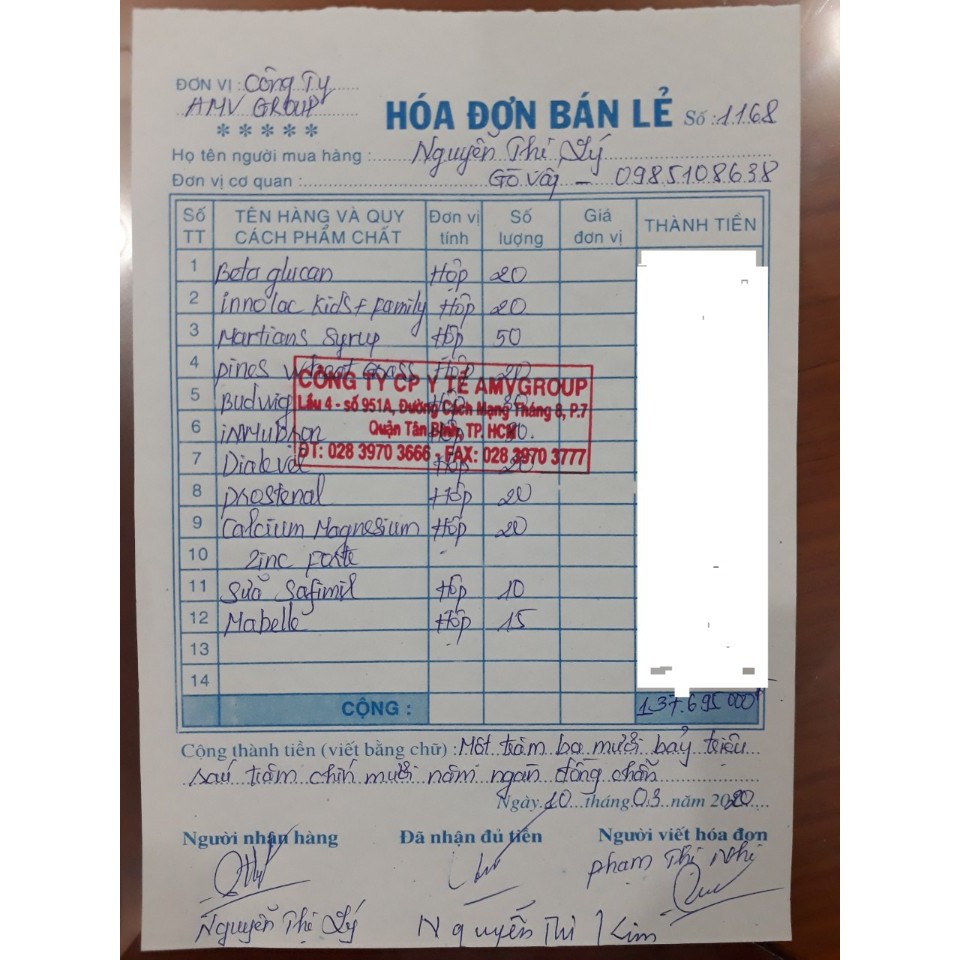 ĐƠN VỊ : Công Ty
AMV GROUP
*****
HÓA ĐƠN BÁN LẺ Số : 1168
Họ tên người mua hàng : Nguyễn Thị Lý
Đơn vị cơ quan : Gò Vấp - 0985108638
Số TT TÊN HÀNG VÀ QUY CÁCH PHẨM CHẤT Đơn vị tính Số lượng Giá đơn vị THÀNH TIỀN
1 Beta glucan Hộp 20
2 innolac Kids + family Hộp 20
3 Martians Syrup Hộp 50
4 pines wheat grass Hộp 20
5 Budwig
6
7 Hộp 20
8 prostenal Hộp 20
9 Calcium Magnesium Hộp 20
10 Zinc forte
11 Sữa Safimil Hộp 10
12 Mabelle Hộp 15
13
14
CÔNG TY CP Y TẾ AMVGROUP
Lầu 4 - số 951A, Đường Cách Mạng Tháng 8, P.7
Quận Tân Bình, TP. HCM
ĐT: 028 3970 3666 - FAX: 028 3970 3777
CỘNG : 137.695.000đ
Cộng thành tiền (viết bằng chữ) : Một trăm ba mươi bảy triệu
sáu trăm chín mươi năm ngàn đồng chẵn
Ngày 20 tháng 03 năm 2020
Người nhận hàng Đã nhận đủ tiền Người viết hóa đơn
phạm Thị Nhi
Nguyễn Thị Lý Nguyễn Thi Kim